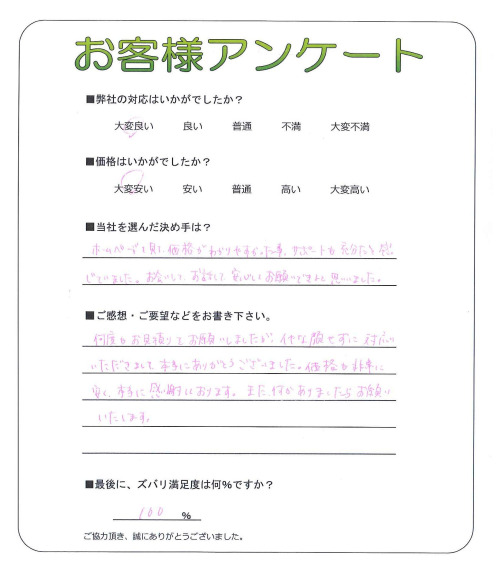 お客様アンケート
■弊社の対応はいかがでしたか?
大変良い 良い 普通 不満 大変不満
■価格はいかがでしたか?
大変安い 安い 普通 高い 大変高い
■当社を選んだ決め手は?
ホームページを見て、価格がわかりやすかった事、サポートも充分だと感
じていました。お会いして、お話して、安心してお願いできると思いました。
■ご感想・ご要望などをお書き下さい。
何度もお見積りでお願いしましたが、イヤな顔せずに対応
いただきまして本当にありがとうございました。価格も非常に
安く、本当に感謝しております。また、何かありましたらお願い
いたします。
■最後に、ズバリ満足度は何%ですか?
100 %
ご協力頂き、誠にありがとうございました。